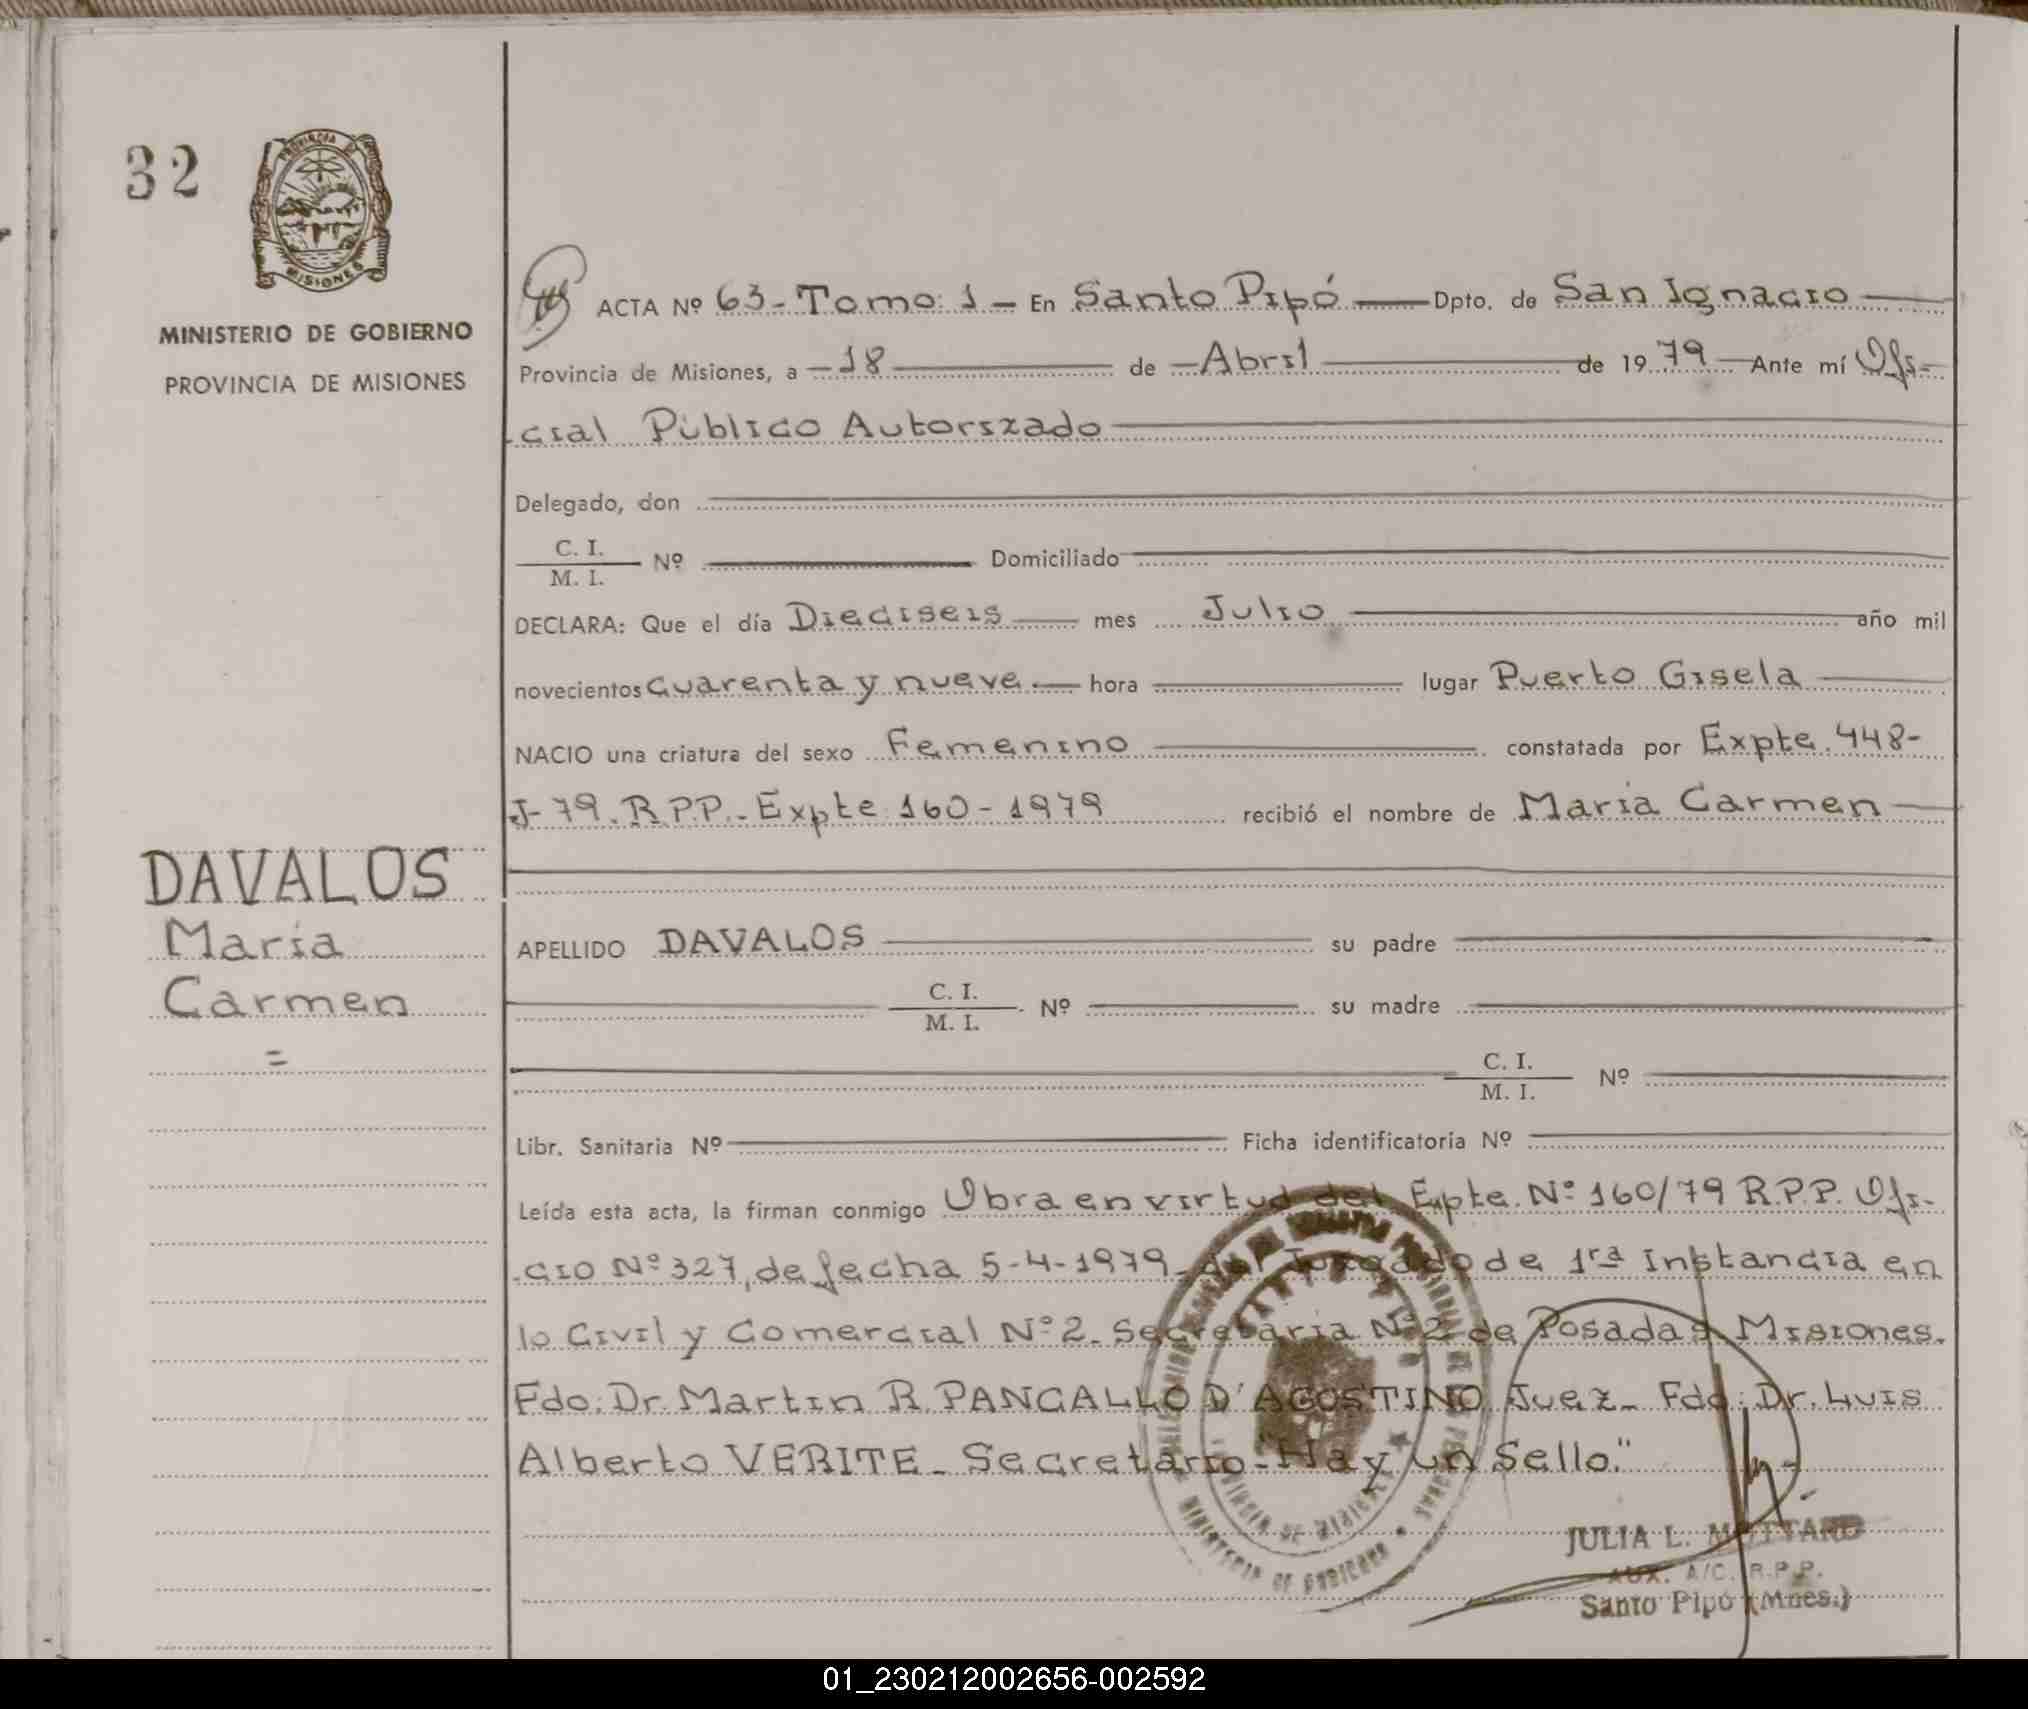 32
PROVINCIA DE
MISIONES
MINISTERIO DE GOBIERNO
PROVINCIA DE MISIONES
DAVALOS
María
Carmen
=
ACTA Nº 63-Tomo: 1 - En Santo Pipó Dpto. de San Ignacio
Provincia de Misiones, a -18 de -Abril de 1979 Ante mí Ofi-
cial Público Autorizado
Delegado, don
C. I.
M. I. Nº Domiciliado
DECLARA: Que el día Dieciseis mes Julio año mil
novecientos cuarenta y nueve. hora lugar Puerto Gisela
NACIO una criatura del sexo Femenino constatada por Expte. 448-
J-79. R.P.P.- Expte 160-1979 recibió el nombre de María Carmen
APELLIDO DAVALOS su padre
C. I.
M. I. Nº su madre
C. I.
M. I. Nº
Libr. Sanitaria Nº Ficha identificatoria Nº
Leída esta acta, la firman conmigo Obra en virtud del Expte. Nº 160/79 R.P.P. Ofi-
cio Nº 327, de fecha 5-4-1979- del Juzgado de 1ra Instancia en
lo Civil y Comercial Nº 2. Secretaría Nº 2 de Posadas Misiones.
Fdo: Dr. Martin R. PANCALLO D'AGOSTINO Juez- Fdo: Dr. Luis
Alberto VERITE- Secretario- "Hay un Sello."
MINISTERIO DE GOBIERNO
PROVINCIA DE MISIONES
JULIA L. MOTTARD
AUX. A/C. R.P.P.
Santo Pipó (Mnes.)
01_230212002656-002592